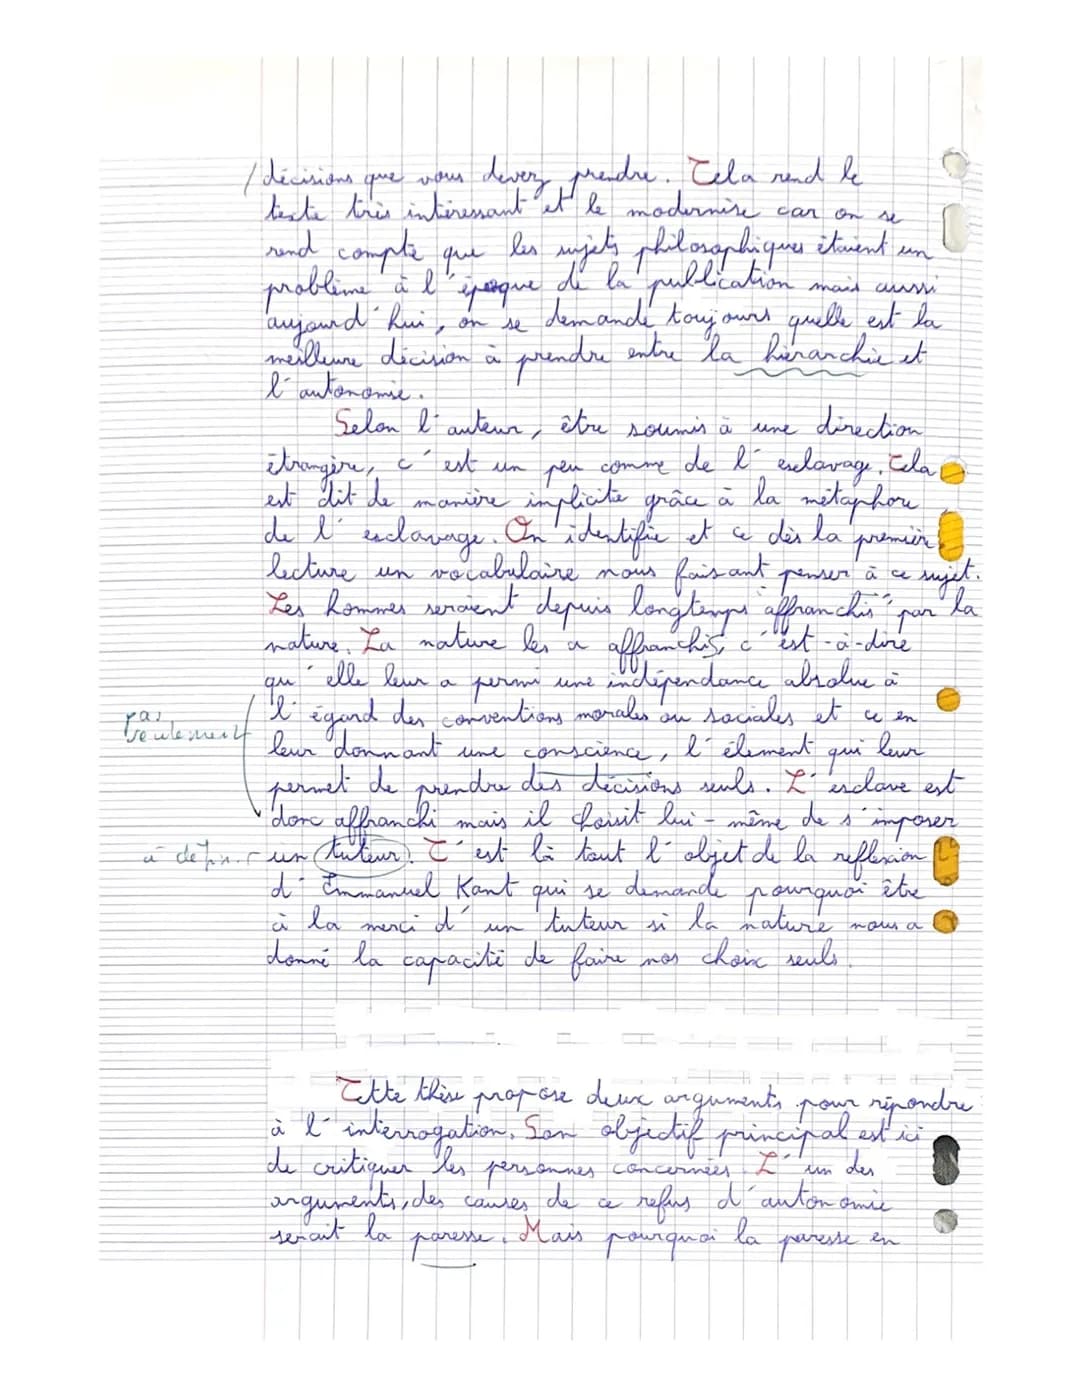 décisions que vous devez prendre. Cela rend le
texte très intéressant et le modernise car on se
rend compte que les sujets philosophiques étaient un
problème à l'époque de la publication mais aussi
aujourd'hui, on se demande toujours quelle est la
meilleure décision à prendre entre la hiérarchie et
l'autonomie.
Selon l'auteur, être soumis à une direction
étrangère, c'est un peu comme de l'esclavage. Cela
est dit de manière implicite grâce à la métaphore
de l'esclavage. On identifie et ce dès la première
lecture un vocabulaire nous faisant penser à ce sujet.
Les hommes seraient depuis longtemps "affranchis" par la
nature. La nature les a affranchis, c'est-à-dire
qu'elle leur a permi une indépendance absolue à
pas
seulement
l'égard des conventions morales ou sociales et ce en
leur donnant une conscience, l'élement qui leur
permet de prendre des décisions seuls. L'esclave est
donc affranchi mais il choisit lui-même de s'imposer
à définir
un tuteur. C'est là tout l'objet de la reflexion
d'Emmanuel Kant qui se demande pourquoi être
à la merci d'un tuteur si la nature nous a
donné la capacité de faire nos choix seuls.
Cette thèse propose deux arguments pour répondre
à l'interrogation. Son objectif principal est ici
de critiquer les personnes concernées. L'un des
arguments, des causes de ce refus d'autonomie
serait la paresse. Mais pourquoi la paresse en